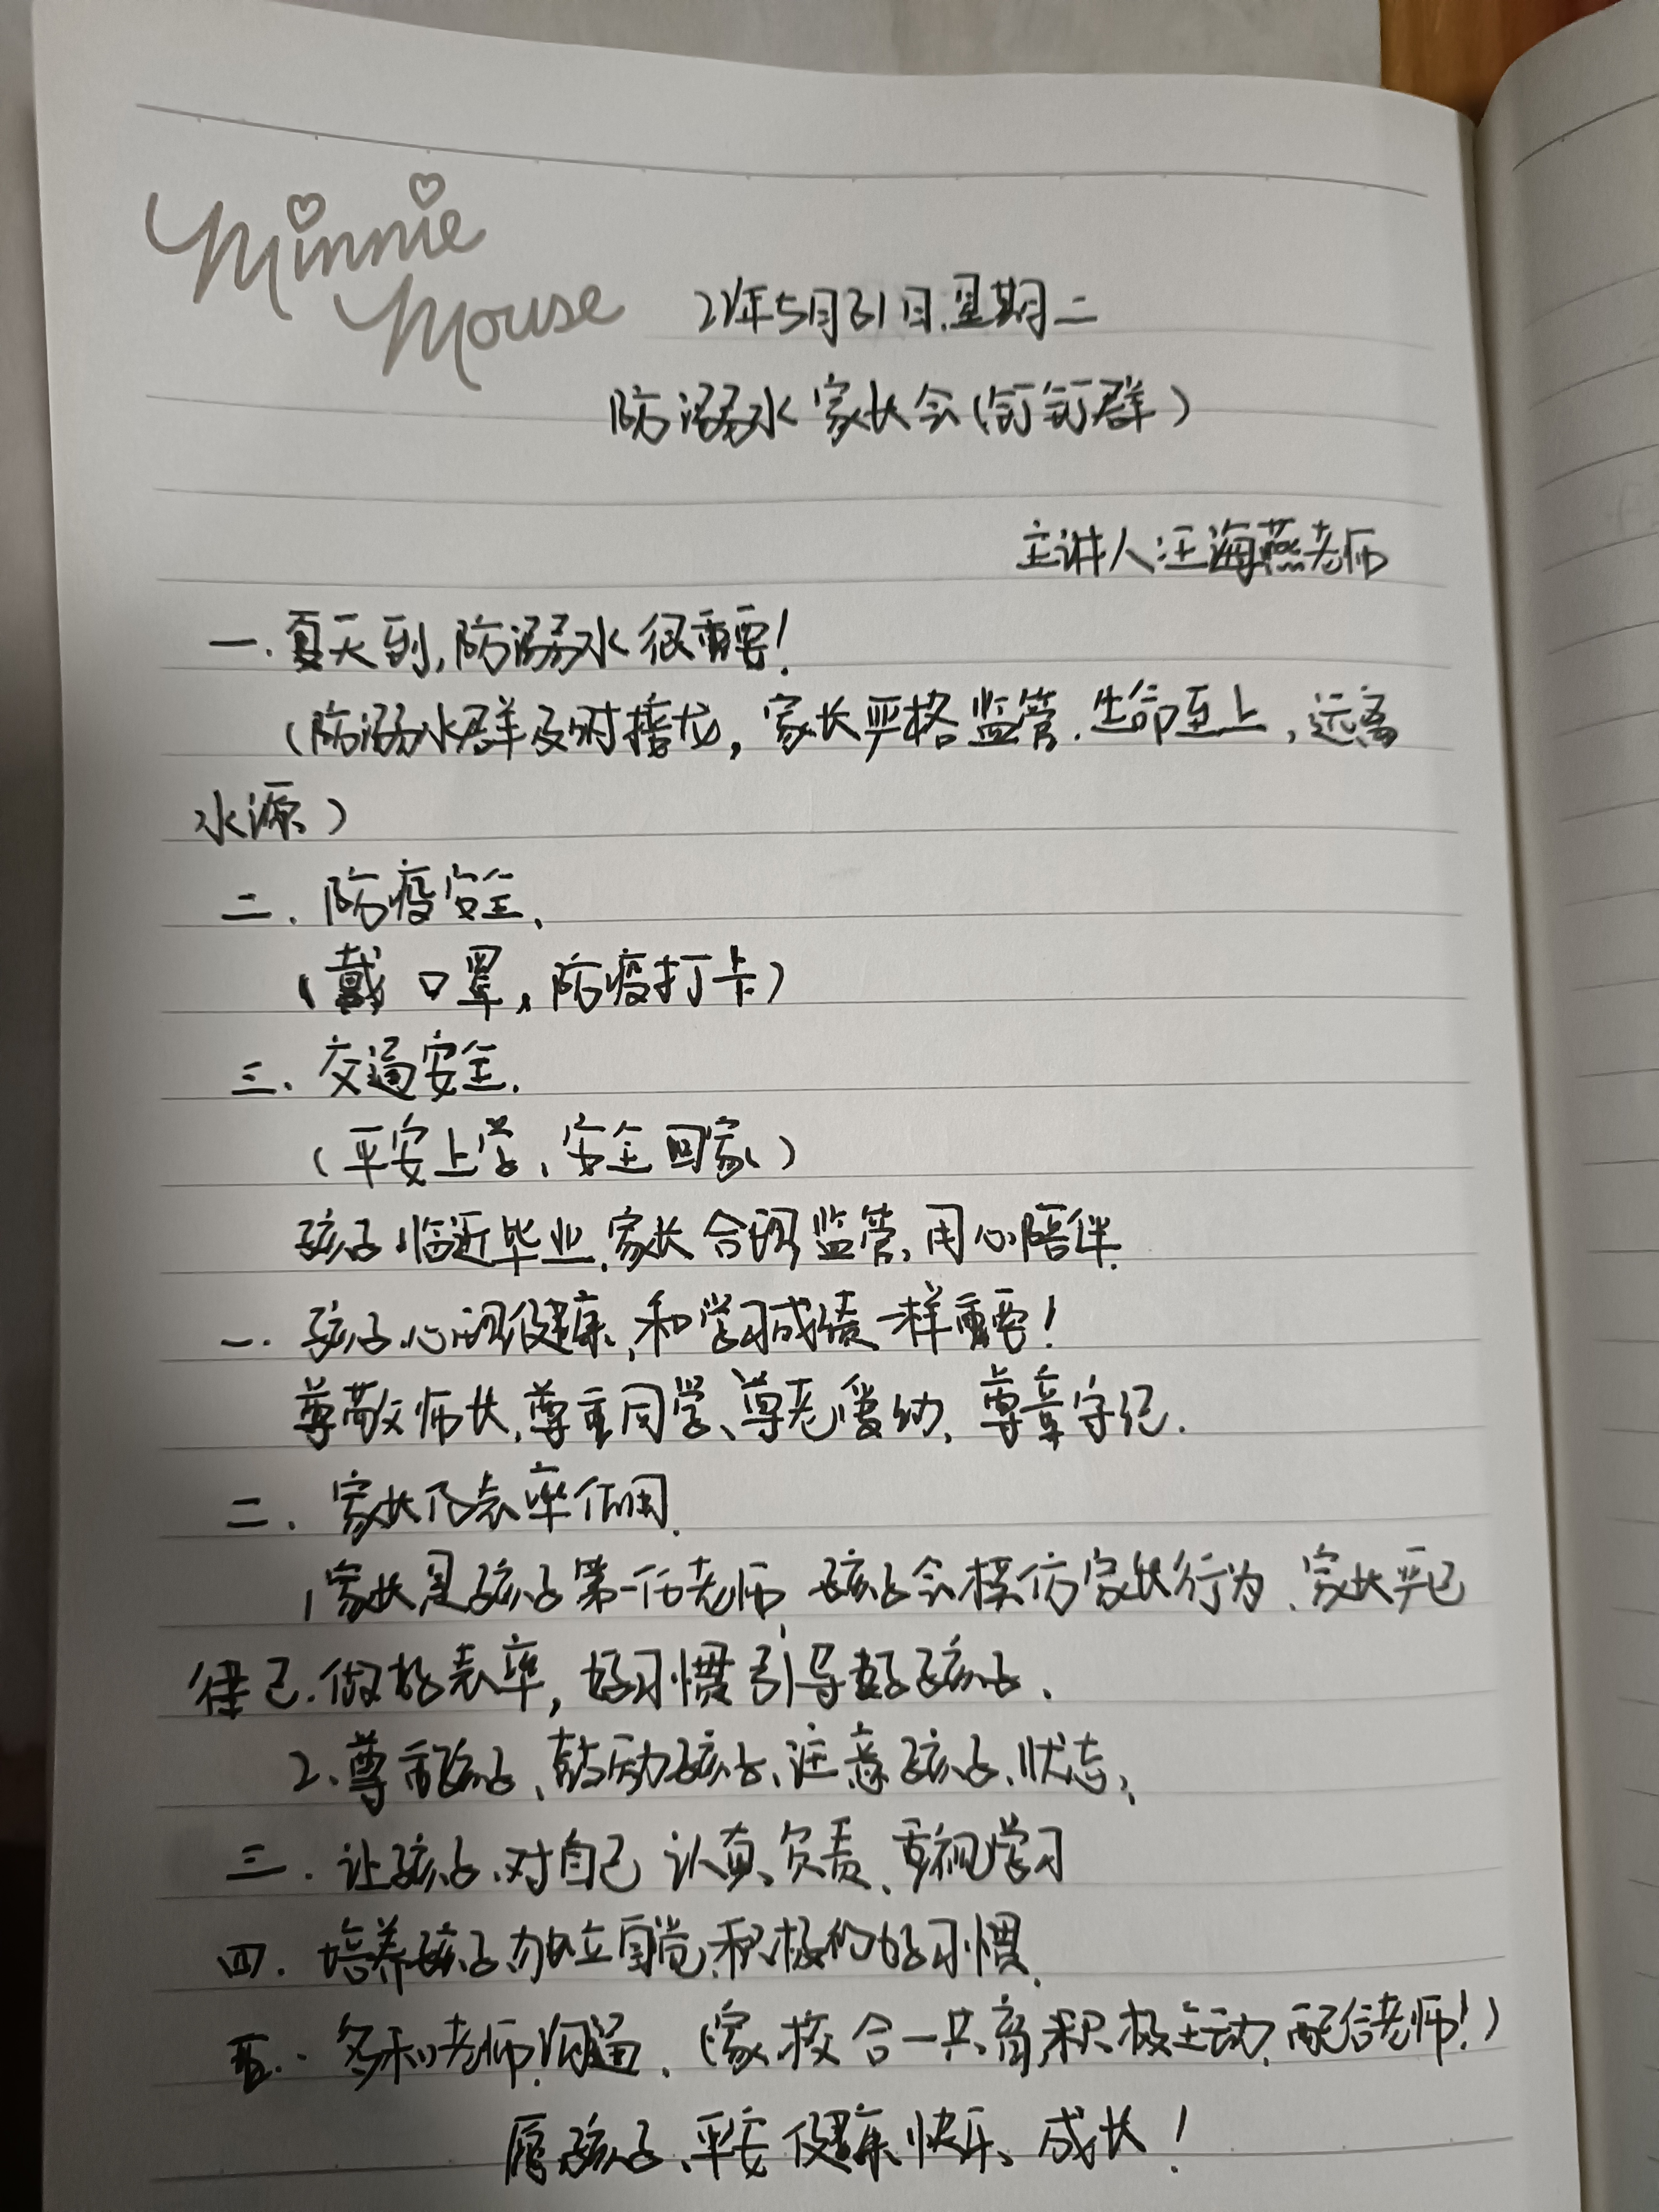 Minnie
Mouse
22年5月31日.星期二
防溺水家长会(钉钉群)
主讲人:汪海燕老师
一.夏天到,防溺水很重要!
(防溺水群及时接龙,家长严格监管.生命至上,远离
水源)
二.防疫安全、
(戴口罩,防疫打卡)
三.交通安全.
(平安上学、安全回家)
孩子临近毕业.家长合理监管,用心陪伴.
一.孩子心理健康,和学习成绩一样重要!
尊敬师长,尊重同学、尊老爱幼,尊章守纪.
二.家长作表率作用.
1家长是孩子第一任老师 孩子会模仿家长行为、家长严己
律己.做好表率,好习惯引导好孩子.
2、尊重孩子、鼓励孩子、注意孩子、状态、
三.让孩子、对自己认真、负责、重视学习
四.培养孩子独立自觉、积极的好习惯.
五.多和老师沟通.(家校合一共育,积极主动,配合老师!)
愿孩子、平安健康快乐、成长!